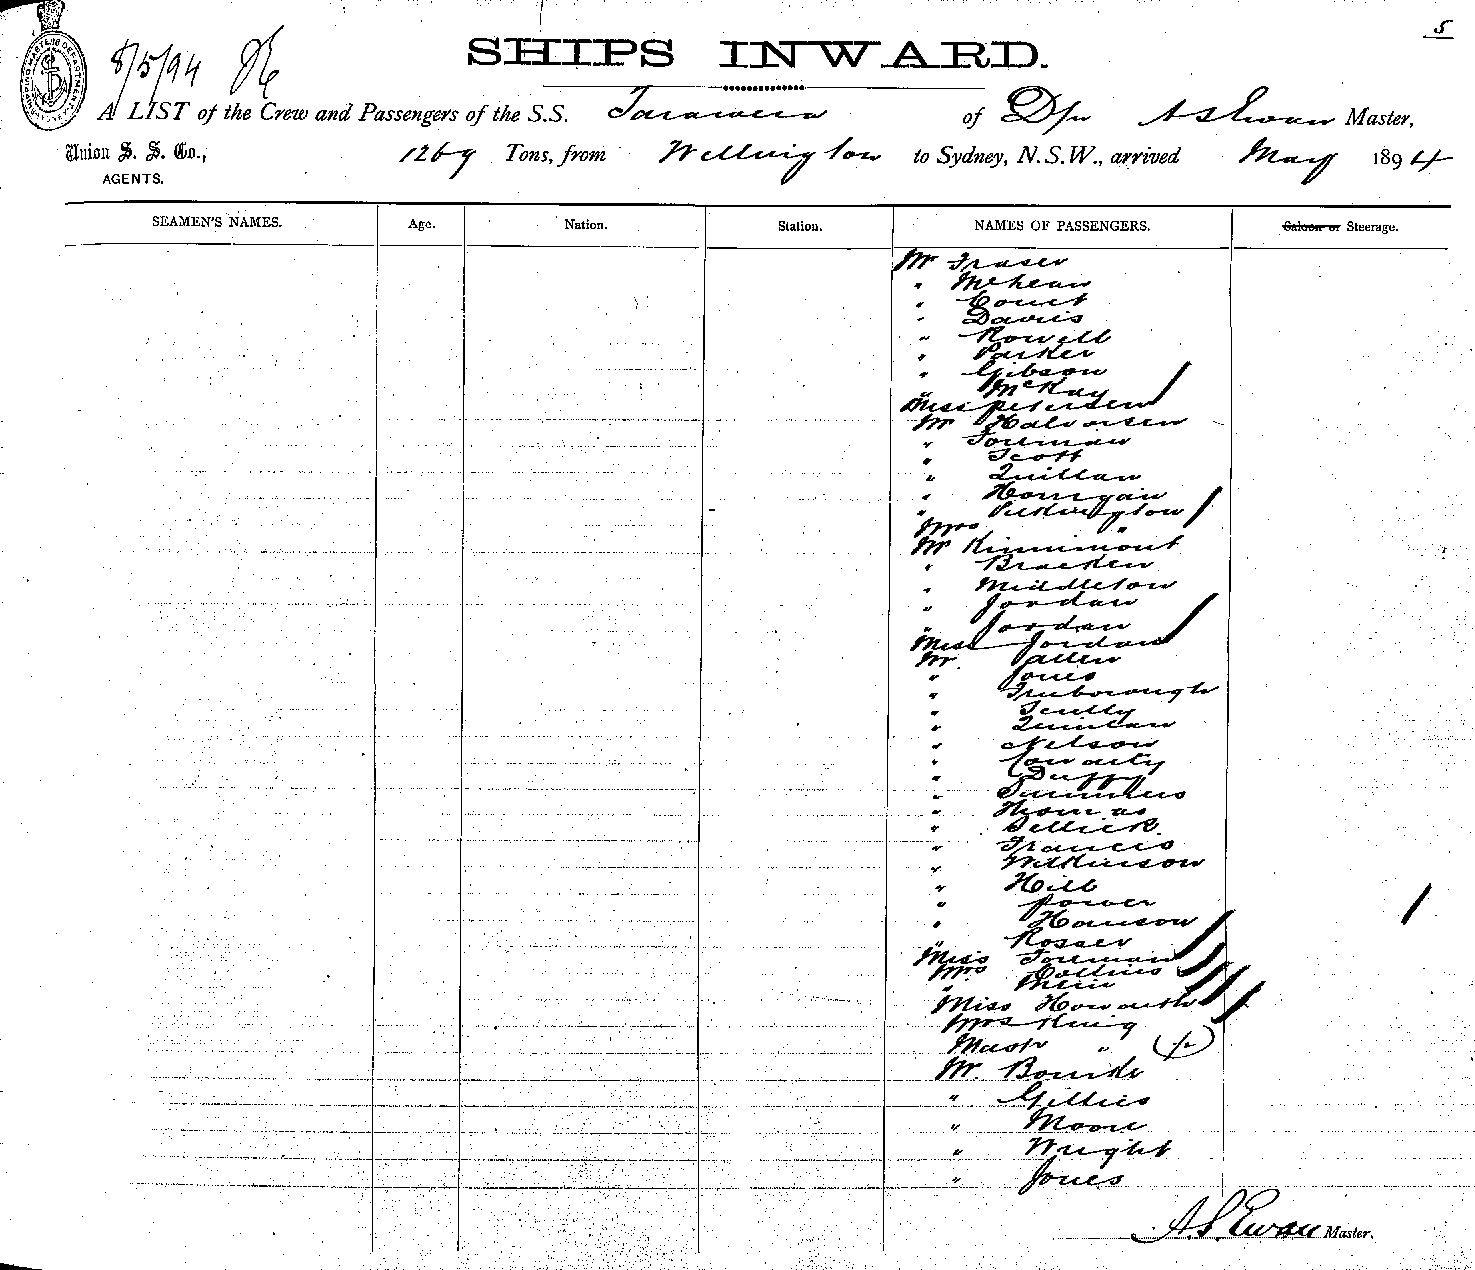 5
8/5/94
SHIPS INWARD.
A LIST of the Crew and Passengers of the S.S. Tarawera of Ddn A S Ewan Master,
Union S. S. Co.,
AGENTS.
1269 Tons, from Wellington to Sydney, N.S.W., arrived May 1894
SEAMEN'S NAMES. Age. Nation. Station. NAMES OF PASSENGERS. Saloon or Steerage.
Mr Fraser
" McLean
" Court
" Davis
" Rowell
" Parker
" Gibson
" McKay
Miss Petersen
Mr Halvorsen
" Foreman
" Scott
" Quillan
" Horrigan
" Pilkington
Mrs "
Mr Kinnimont
" Bracken
" Middleton
" Jordan
" Jordan
Miss Jordan
Mr Pallin
" Jones
" Freeborough
" Scully
" Quinlan
" Nelson
" Conarty
" Duffy
" Summers
" Thomas
" Sellick
" Francis
" Wilkinson
" Hill
" Power
" Hanson
" Rosser
Miss Foreman
Mrs Collins
"
Miss Howarth
Mrs King
Mastr "
Mr. Bourke
" Gillies
" Moore
" Wright
" Jones
A. S. Ewan Master.